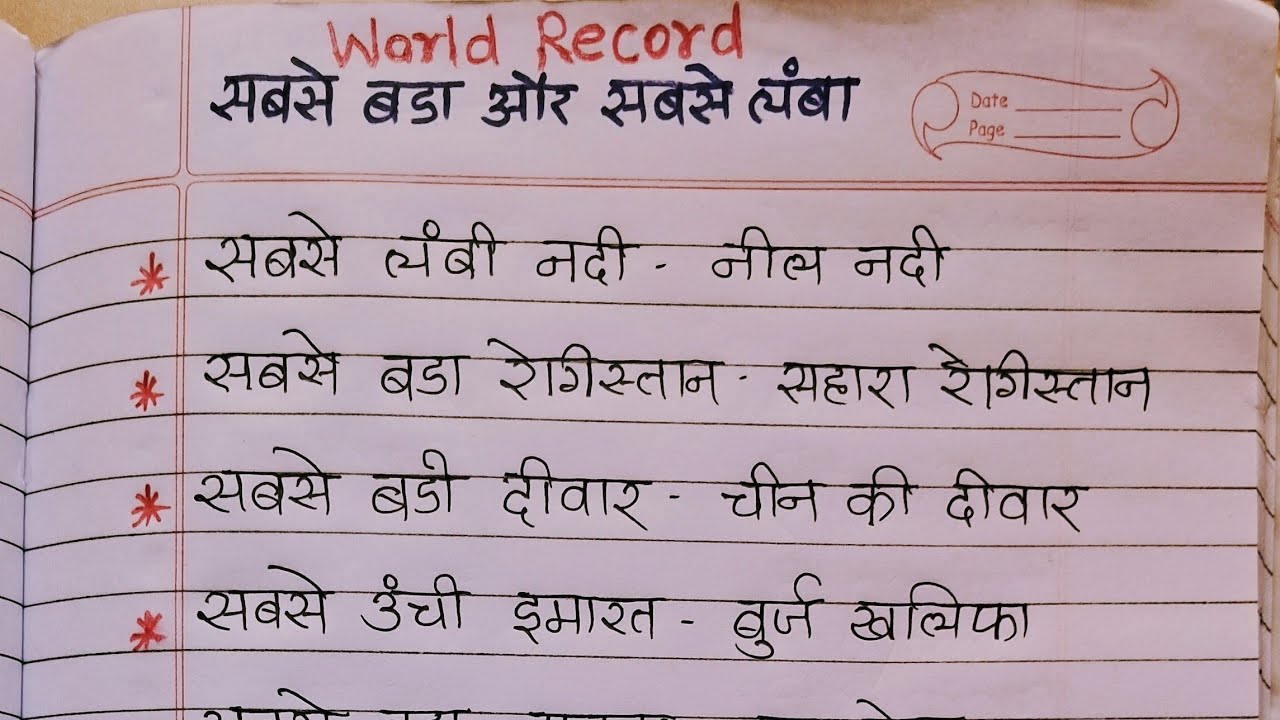 World Record
सबसे बडा और सबसे लंबा
Date
Page
* सबसे लंबी नदी - नील नदी
* सबसे बडा रेगीस्तान - सहारा रेगीस्तान
* सबसे बडी दीवार - चीन की दीवार
* सबसे उंची इमारत - बुर्ज खलिफा